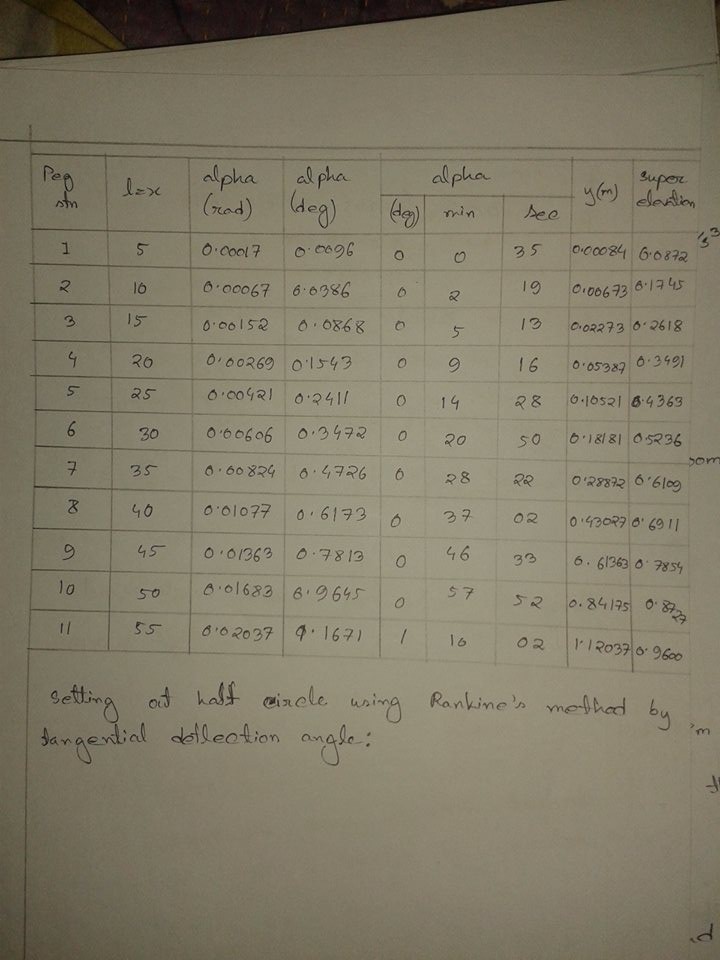 Peg stn | l=x | alpha (rad) | alpha (deg) | alpha (deg) | min | sec | y(m) | super elevation
1 | 5 | 0.00017 | 0.0096 | 0 | 0 | 35 | 0.00084 | 0.0872
2 | 10 | 0.00067 | 0.0386 | 0 | 2 | 19 | 0.00673 | 0.1745
3 | 15 | 0.00152 | 0.0868 | 0 | 5 | 13 | 0.02273 | 0.2618
4 | 20 | 0.00269 | 0.1543 | 0 | 9 | 16 | 0.05387 | 0.3491
5 | 25 | 0.00421 | 0.2411 | 0 | 14 | 28 | 0.10521 | 0.4363
6 | 30 | 0.00606 | 0.3472 | 0 | 20 | 50 | 0.18181 | 0.5236
7 | 35 | 0.00824 | 0.4726 | 0 | 28 | 22 | 0.28872 | 0.6109
8 | 40 | 0.01077 | 0.6173 | 0 | 37 | 02 | 0.43027 | 0.6911
9 | 45 | 0.01363 | 0.7813 | 0 | 46 | 33 | 0.61363 | 0.7854
10 | 50 | 0.01683 | 0.9645 | 0 | 57 | 52 | 0.84175 | 0.8727
11 | 55 | 0.02037 | 1.1671 | 1 | 10 | 02 | 1.12037 | 0.9600
setting out half circle using Rankine's method by
tangential deflection angle: